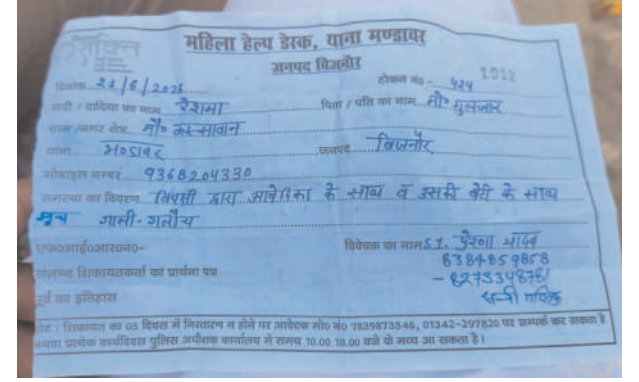 शक्ति
महिला हेल्प डेस्क, थाना मण्डावर
जनपद बिजनौर
दिनांक 22/6/2025 टोकन नं०- 424 1012
वादी / वादिया का नाम रेशमा पिता / पति का नाम मौ० गुलजार
ग्राम /नगर क्षेत्र मौ० कस्सावान
थाना मण्डावर जनपद बिजनौर
मोबाइल नम्बर 9368204330
समस्या का विवरण विपक्षी द्वारा आवेदिका के साथ व उसकी बेटी के साथ
गाली-गलौच
एफ०आई०आर०नं०- विवेचक का नाम S.I. प्रेरणा यादव
6384859858
संलग्न शिकायतकर्ता का प्रार्थना पत्र - 8273348761
पूर्व का इतिहास
नोट : शिकायत का 05 दिवस में निस्तारण न होने पर आवेदक मो० नं० 7839873546, 01342-297820 पर सम्पर्क कर सकता है
अथवा प्रत्येक कार्यदिवस पुलिस अधीक्षक कार्यालय में समय 10.00 18.00 बजे के मध्य आ सकता है।